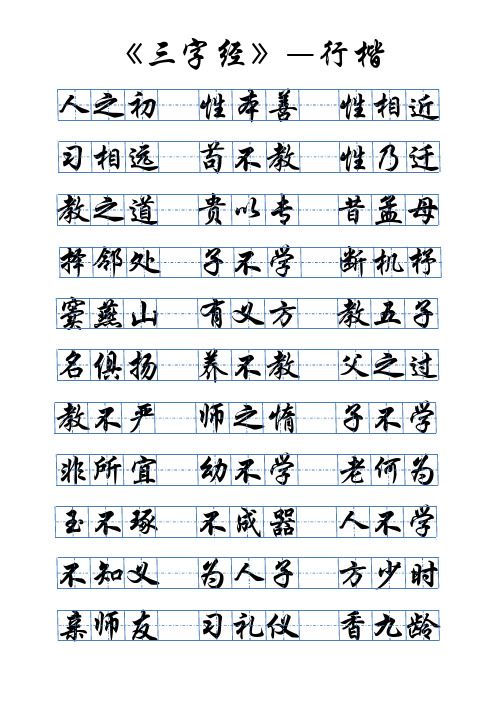 《三字经》—行楷
人之初 性本善 性相近
习相远 苟不教 性乃迁
教之道 贵以专 昔孟母
择邻处 子不学 断机杼
窦燕山 有义方 教五子
名俱扬 养不教 父之过
教不严 师之惰 子不学
非所宜 幼不学 老何为
玉不琢 不成器 人不学
不知义 为人子 方少时
亲师友 习礼仪 香九龄